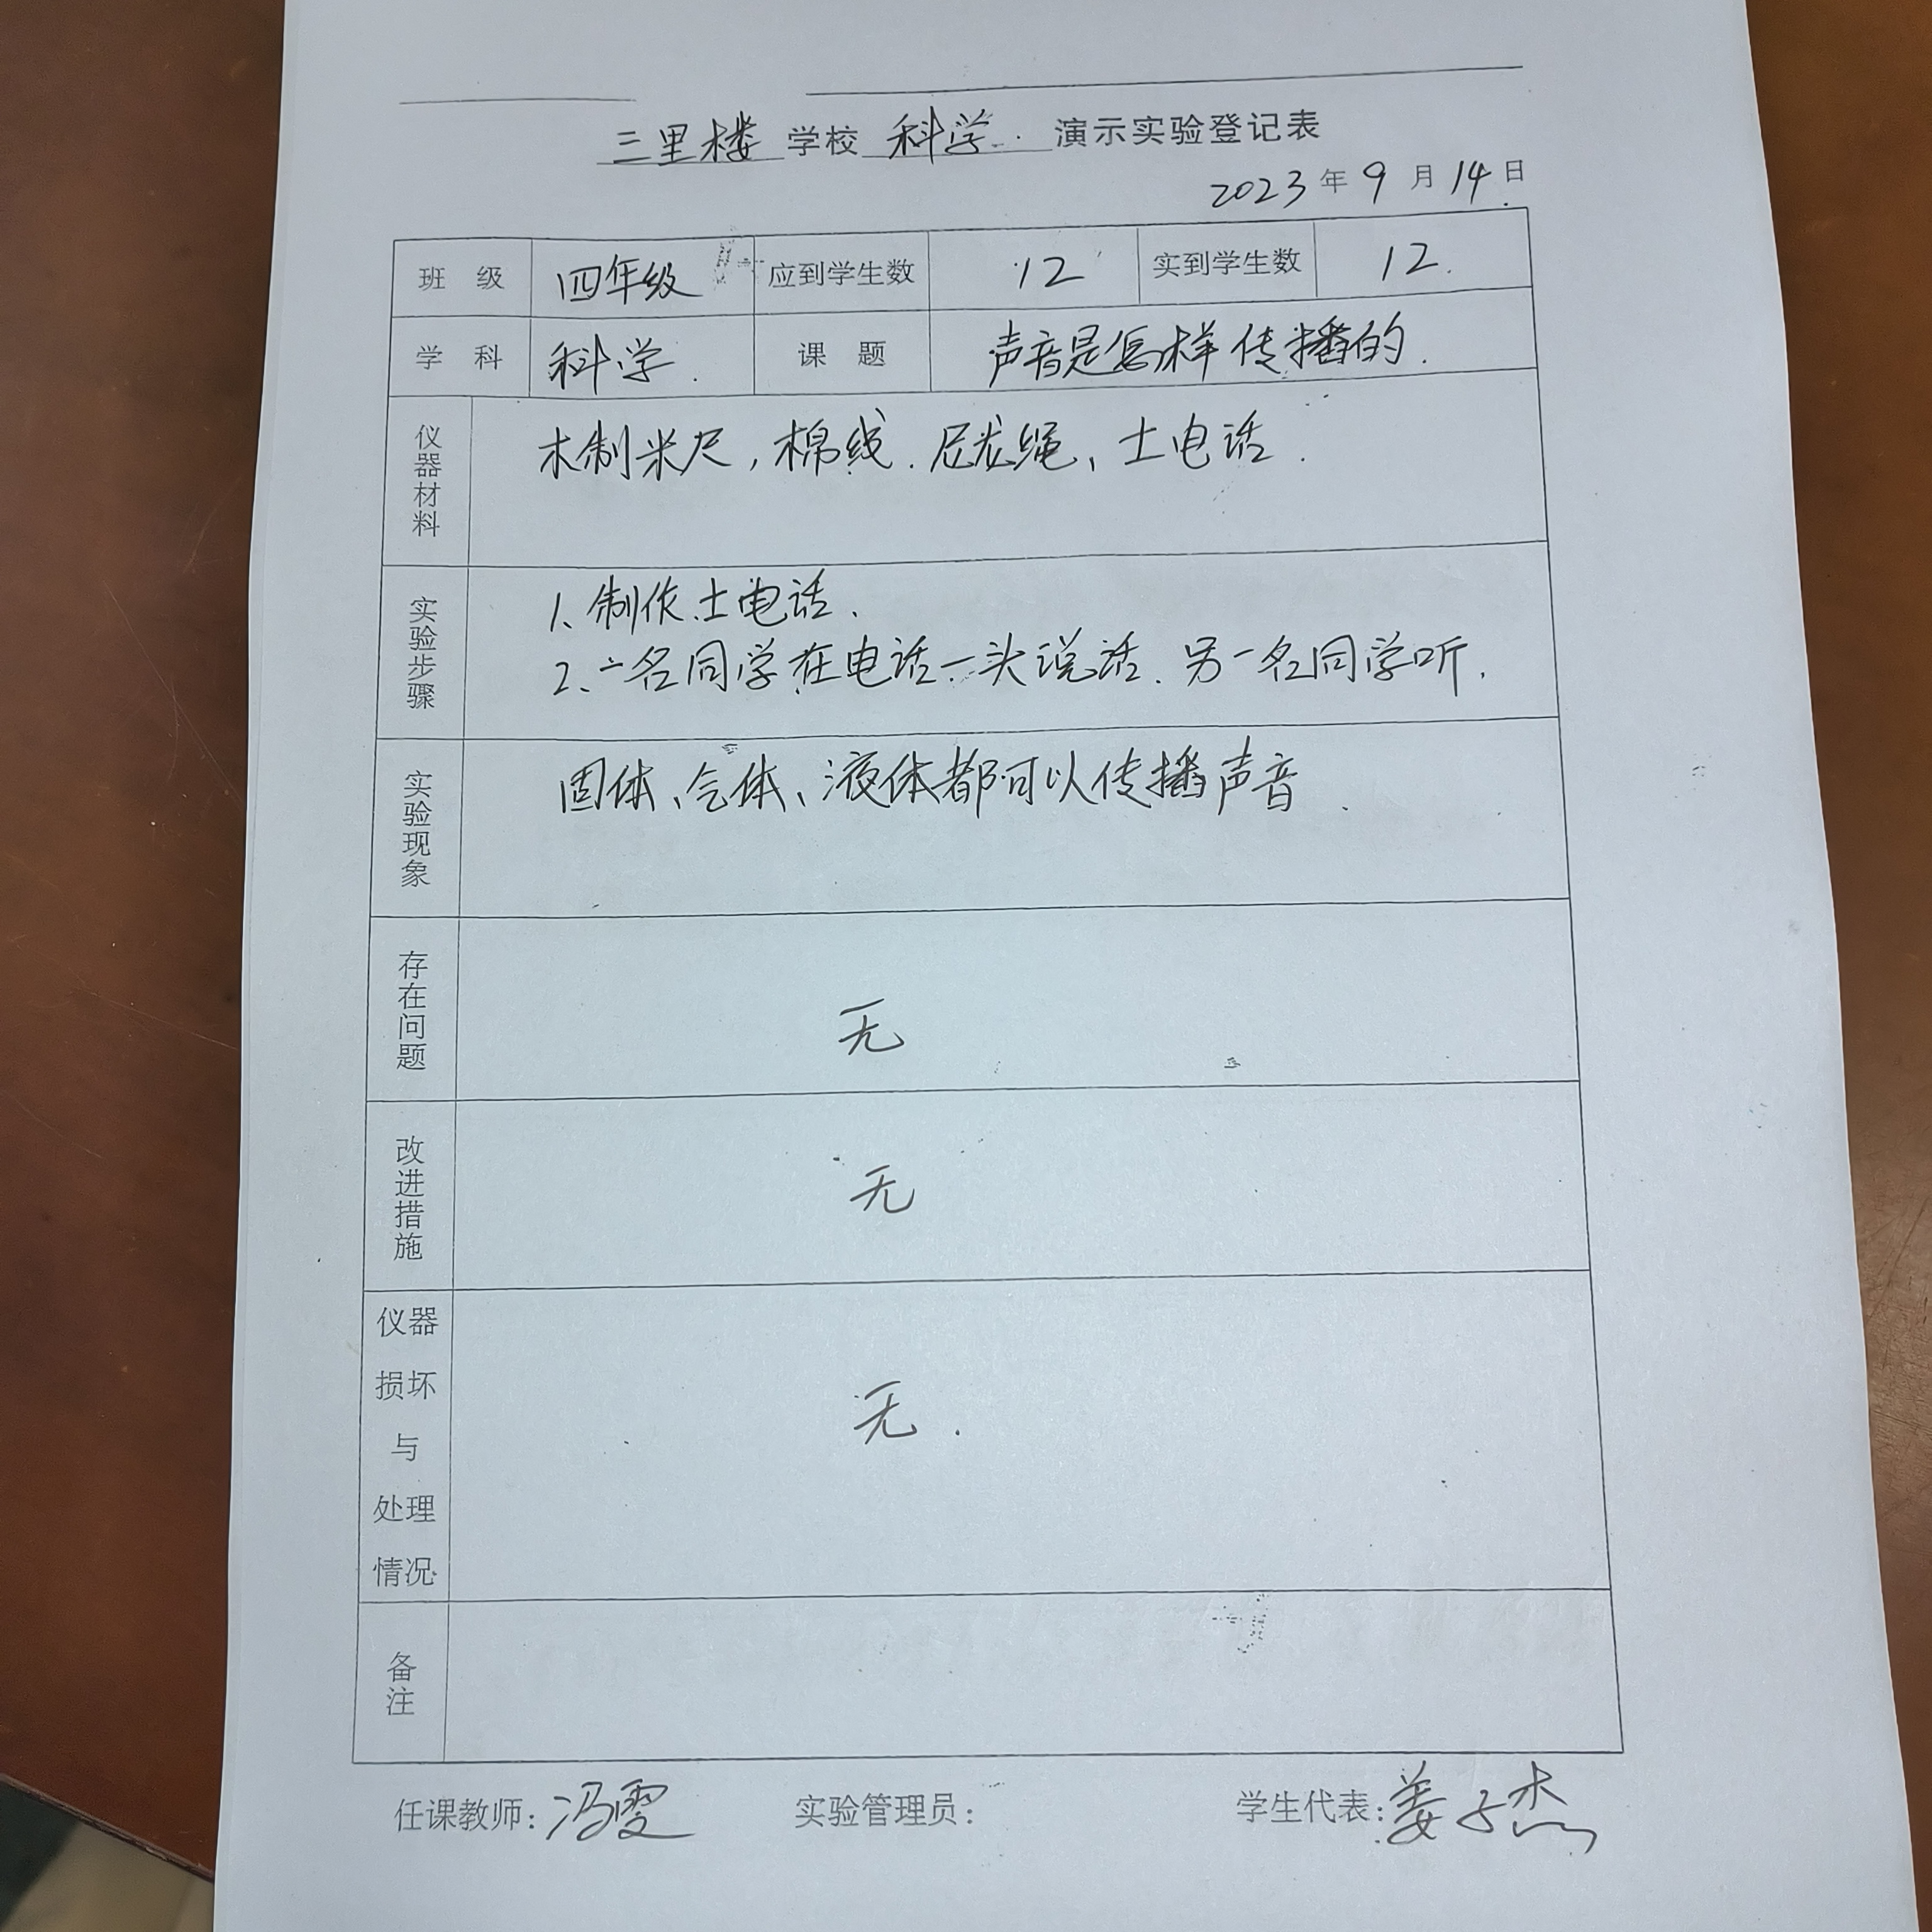 三里楼 学校 科学 演示实验登记表
2023 年 9 月 14 日
班 级 四年级 应到学生数 12 实到学生数 12
学 科 科学 课 题 声音是怎样传播的
仪器材料 木制米尺,棉线、尼龙绳、土电话
实验步骤 1、制作土电话、
2、一名同学在电话一头说话、另一名同学听、
实验现象 固体、气体、液体都可以传播声音
存在问题 无
改进措施 无
仪器
损坏
与
处理
情况
无.
备注
任课教师:冯雯 实验管理员: 学生代表:姜子杰